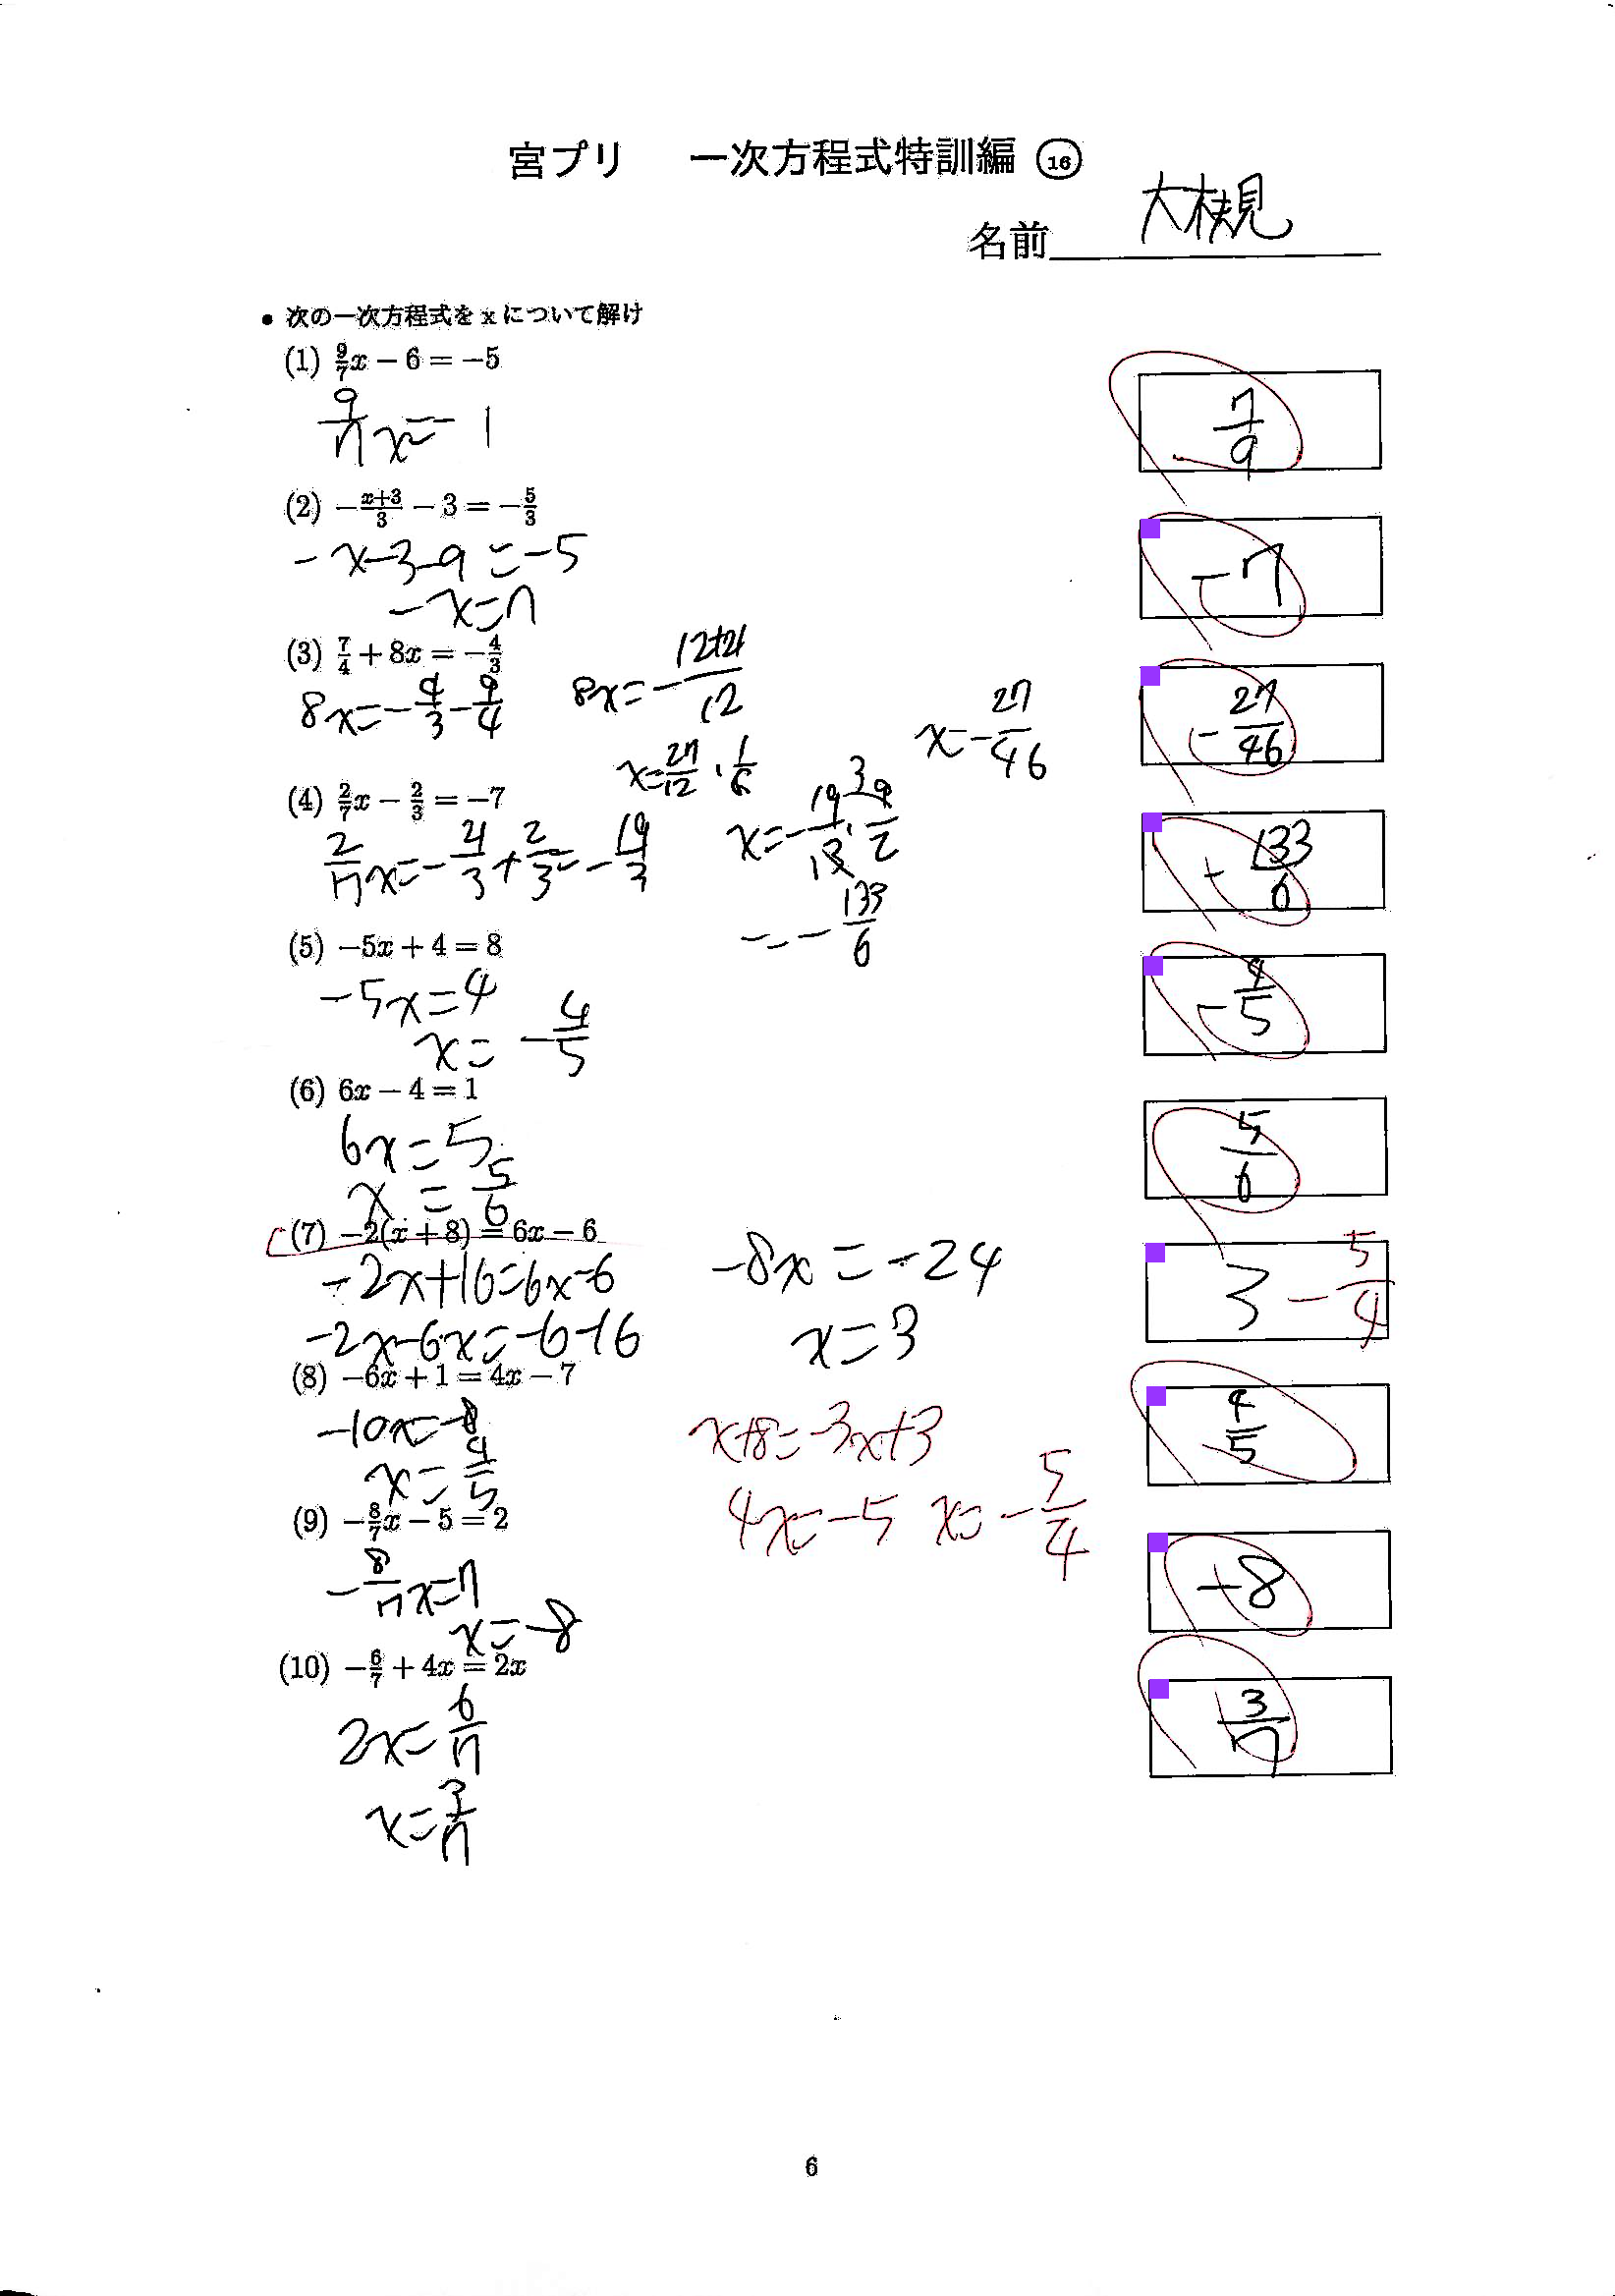 宮プリ 一次方程式特訓編 ⑯
名前 大槻晃
● 次の一次方程式を x について解け
(1) 9/7 x − 6 = −5
9/7 x = 1
7/9
(2) −(x+3)/3 − 3 = −5/3
−x−3−9=−5
−x=7
−7
(3) 7/4 + 8x = −4/3
8x=−4/3−9/4
8x=−(12+21)/12
x=27/12・1/6
x−27/46
−27/46
(4) 2/7 x − 2/3 = −7
2/7 x=−21/3+2/3=−19/3
=−133/6
133/6
(5) −5x + 4 = 8
−5x=4
x=−4/5
−4/5
(6) 6x − 4 = 1
6x=5
x=5/6
5/6
(7) −2(x + 8) = 6x − 6
−2x+16=6x−6
−2x−6x=−6−16
−8x=−24
x=3
3 −5/4
(8) −6x + 1 = 4x − 7
−10x=−8
x=4/5
4/5
x+8=−3x+3
4x=−5 x=−5/4
(9) −8/7 x − 5 = 2
−8/7 x=7
x=−8
−8
(10) −6/7 + 4x = 2x
2x=6/7
x=3/7
3/7
6